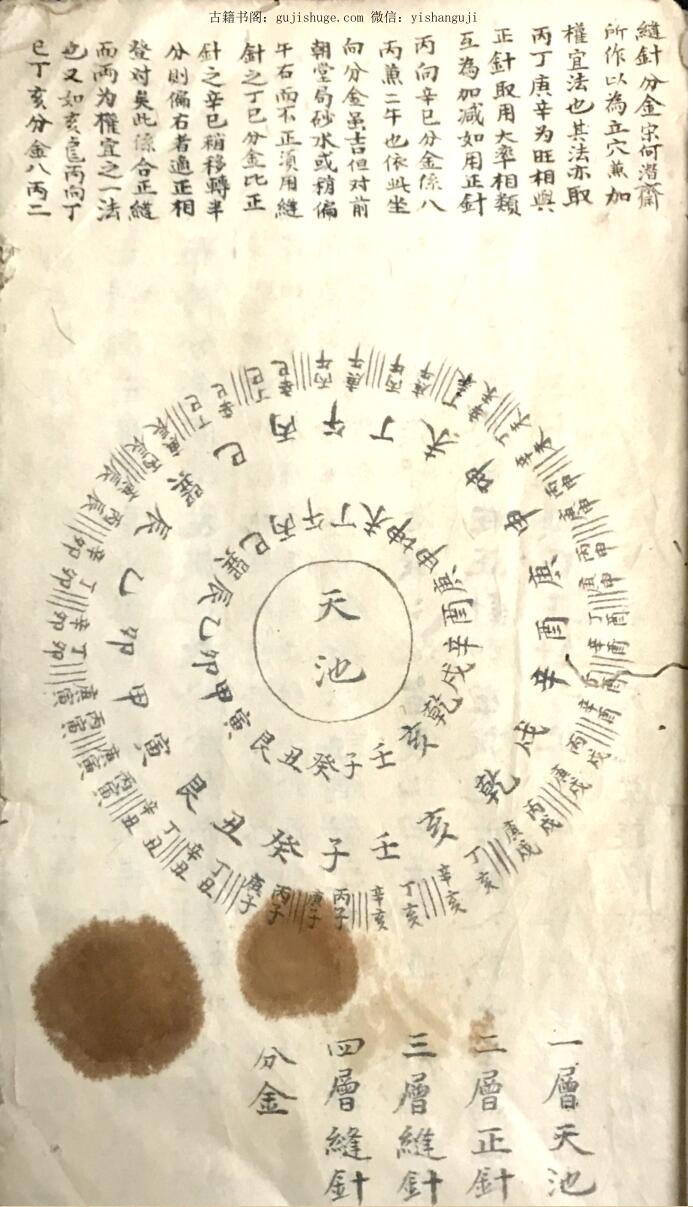 古籍书阁：gujishuge.com 微信：yishanguji
縫針分金宗何潛齋
所作以為立穴兼加
權宜法也其法亦取
丙丁庚辛为旺相與
正針取用大率相類
互為加减如用正針
丙向辛巳分金係八
丙兼二午也依此坐
向分金虽吉但对前
朝堂局砂水或稍偏
午右而不正須用縫
針之丁巳分金比正
針之辛巳稍移轉半
分則偏右者適正相
登对矣此係合正縫
而两为權宜之一法
也又如亥龍丙向丁
巳丁亥分金八丙二
天池
午丁未坤申庚酉辛戌乾亥壬子癸丑艮寅甲卯乙辰巽巳丙
午丁未坤申庚酉辛戌乾亥壬子癸丑艮寅甲卯乙辰巽巳丙
丙午 庚午 丙午 庚午 丁未 辛未 丁未 辛未 丙申 庚申 丙申 庚申 丁酉 辛酉 丁酉 辛酉 丙戌 庚戌 丙戌 庚戌 丁亥 辛亥 丁亥 辛亥 丙子 庚子 丙子 庚子 丁丑 辛丑 丁丑 辛丑 丙寅 庚寅 丙寅 庚寅 丁卯 辛卯 丁卯 辛卯 丙辰 庚辰 丙辰 庚辰 丁巳 辛巳 丁巳 辛巳
一層天池
二層正針
三層縫針
四層縫針
分金